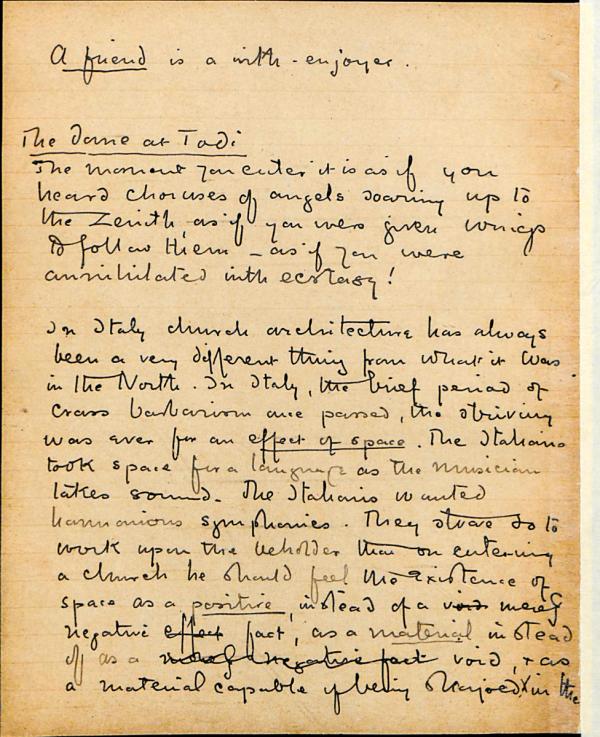 A friend is a with-enjoyer.
The Dome at Todi
The moment you enter it is as if you
heard choruses of angels soaring up to
the Zenith, as if you were given wings
to follow them – as if you were
annihilated with ecstasy!
In Italy church architecture has always
been a very different thing from what it was
in the North. In Italy, the brief period of
crass barbarism once passed, the striving
was ever for an effect of space. The Italians
took space for a language as the musician
takes sound. The Italians wanted
harmonious symphonies. They strove so to
work upon the beholder that on entering
a church he should feel the existence of
space as a positive, instead of a void merely
negative effect fact, as a material instead
of as a merely negative fact void, & as
a material capable of being shaped in the